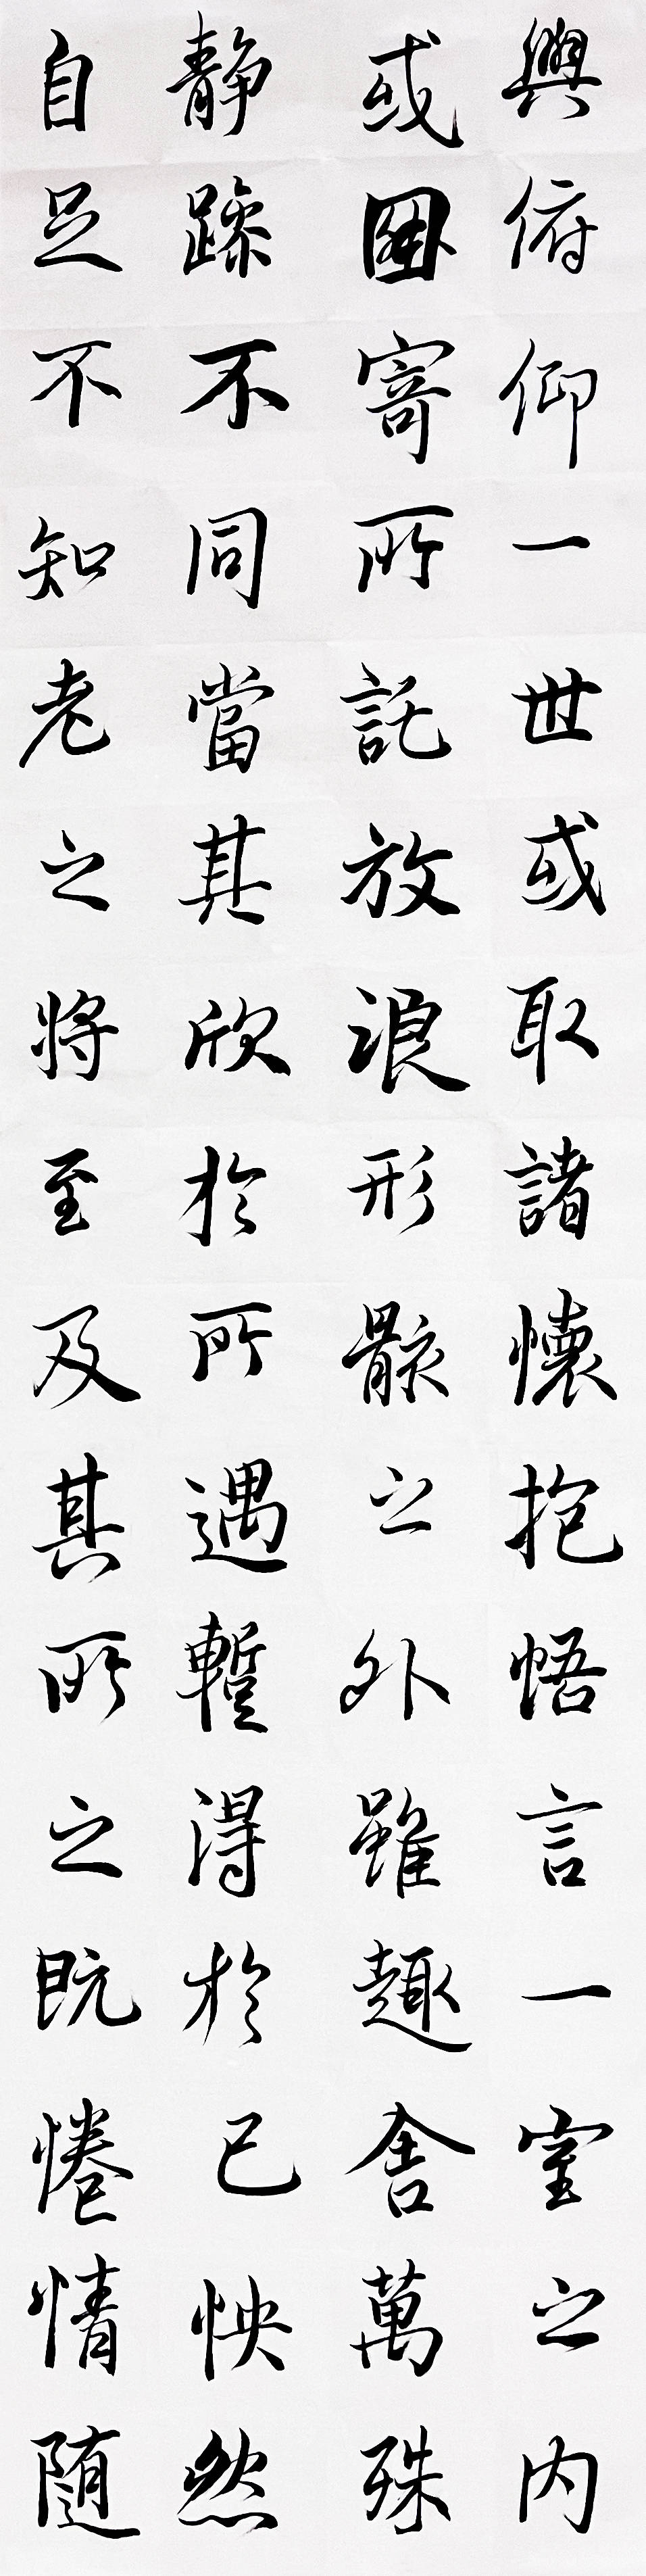 與俯仰一世或取諸懷抱悟言一室之内
或因寄所託放浪形骸之外雖趣舍萬殊
静躁不同當其欣於所遇蹔得於己怏然
自足不知老之將至及其所之既惓情随